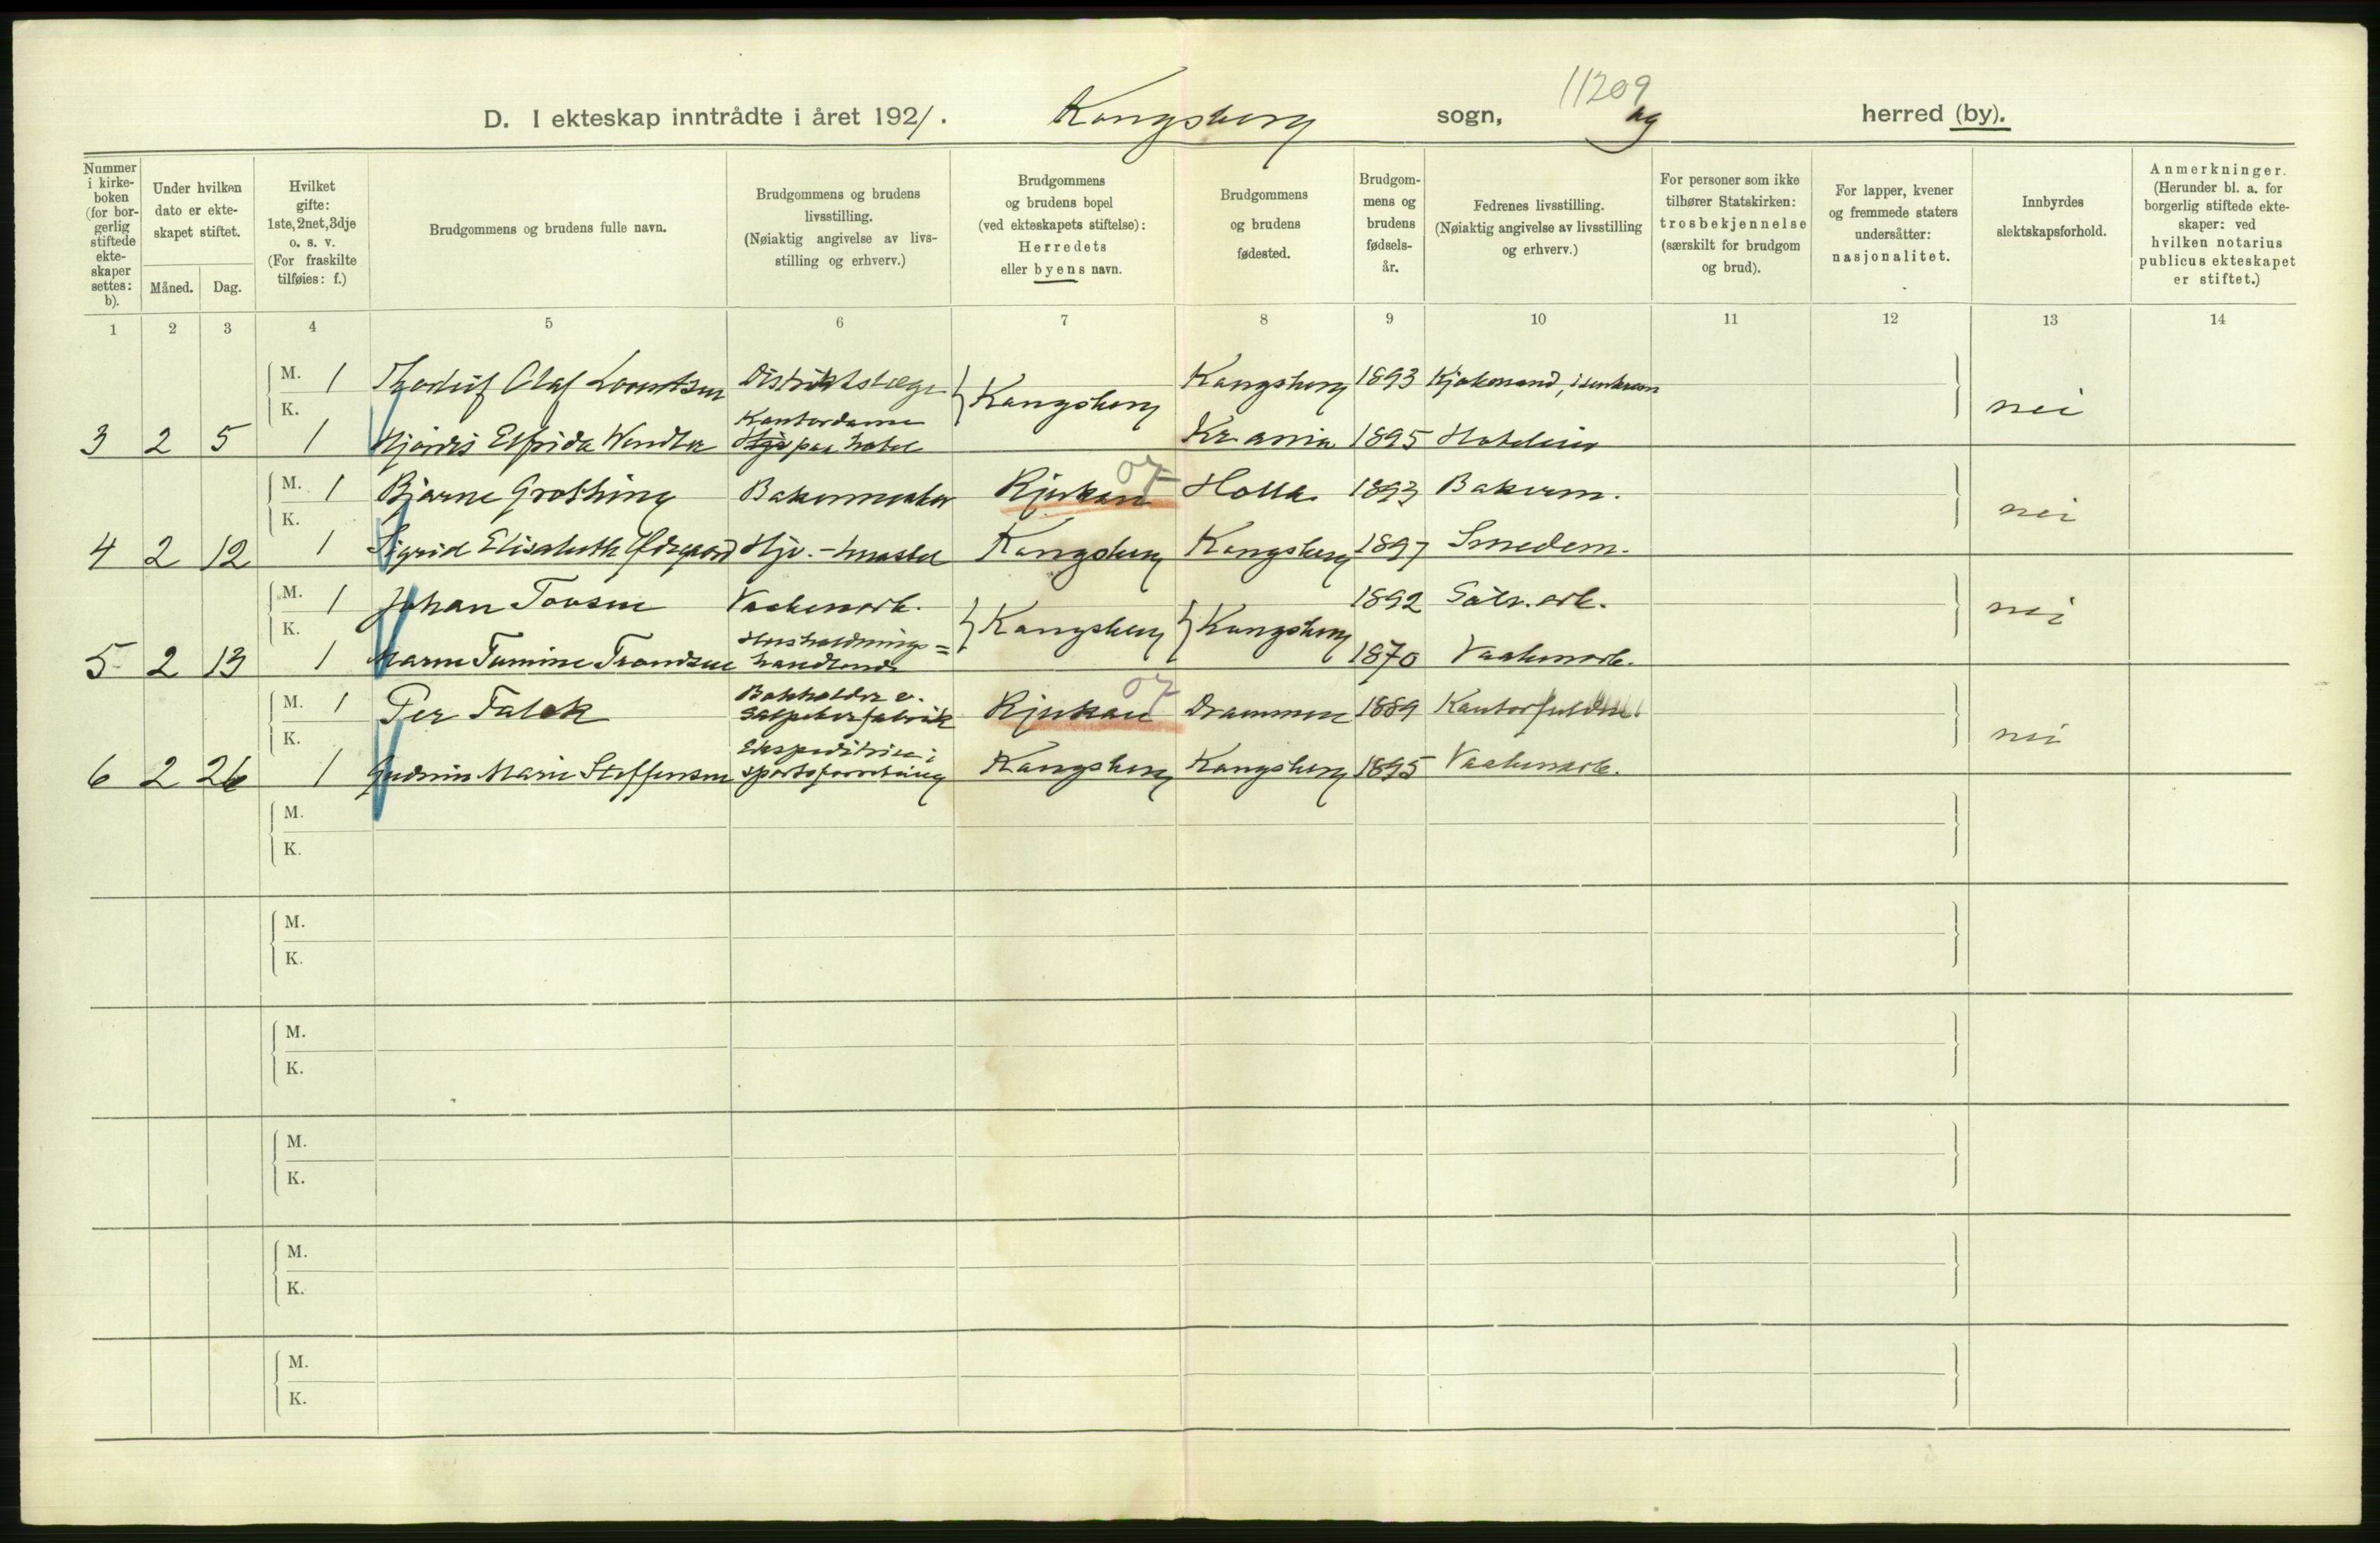 11209
D. I ekteskap inntrådte i året 1921. Kongsberg sogn, og herred (by).
Nummer i kirke- boken (for bor- gerlig stiftede ekte- skaper settes: b).
Under hvilken dato er ekte- skapet stiftet.
Måned. Dag.
Hvilket gifte: 1ste, 2net, 3dje o. s. v. (For fraskilte tilføies: f.)
Brudgommens og brudens fulle navn.
Brudgommens og brudens livsstilling. (Nøiaktig angivelse av livs- stilling og erhverv.)
Brudgommens og brudens bopel (ved ekteskapets stiftelse): Herredets eller byens navn.
Brudgommens og brudens fødested.
Brudgom- mens og brudens fødsels- år.
Fedrenes livsstilling. (Nøiaktig angivelse av livsstilling og erhverv.)
For personer som ikke tilhører Statskirken: trosbekjennelse (særskilt for brudgom og brud).
For lapper, kvener og fremmede staters undersåtter: nasjonalitet.
Innbyrdes slektskapsforhold.
Anmerkninger. (Herunder bl. a. for borgerlig stiftede ekte- skaper: ved hvilken notarius publicus ekteskapet er stiftet.)
1 2 3 4 5 6 7 8 9 10 11 12 13 14
M. 1 Thorleif Olaf Lorentsen Distriktslæge Kongsberg Kongsberg 1893 nei
Kontordame
K. 3 2 5 1 Hjørdis Elfrida Wendler Hje paa hotel Kr.ania 1895 Hoteleier
M. 1 Bjarne Grothing Bakermester Rjukan 07 Holla 1893 Bakerm. nei
K. 4 2 12 1 Sigrid Elisabeth Hje. Kongsberg Kongsberg 1897 Smedem.
M. 1 Johan Tovsen Vaabenarb. Kongsberg Kongsberg 1892 nei
Husholdnings=
K. 5 2 13 1 Maren Tomine Trondsen handlende 1870 Vaabenarb.
Bokholder v.
M. 1 Per Falck Salpeterfabrik Rjukan 07 Drammen 1889 nei
Ekspeditrise i
K. 6 2 26 1 Gudrun Marie Steffensen sportsforretning Kongsberg Kongsberg 1895 Vaabenarb.
M.
K.
M.
K.
M.
K.
M.
K.
M.
K.
M.
K.